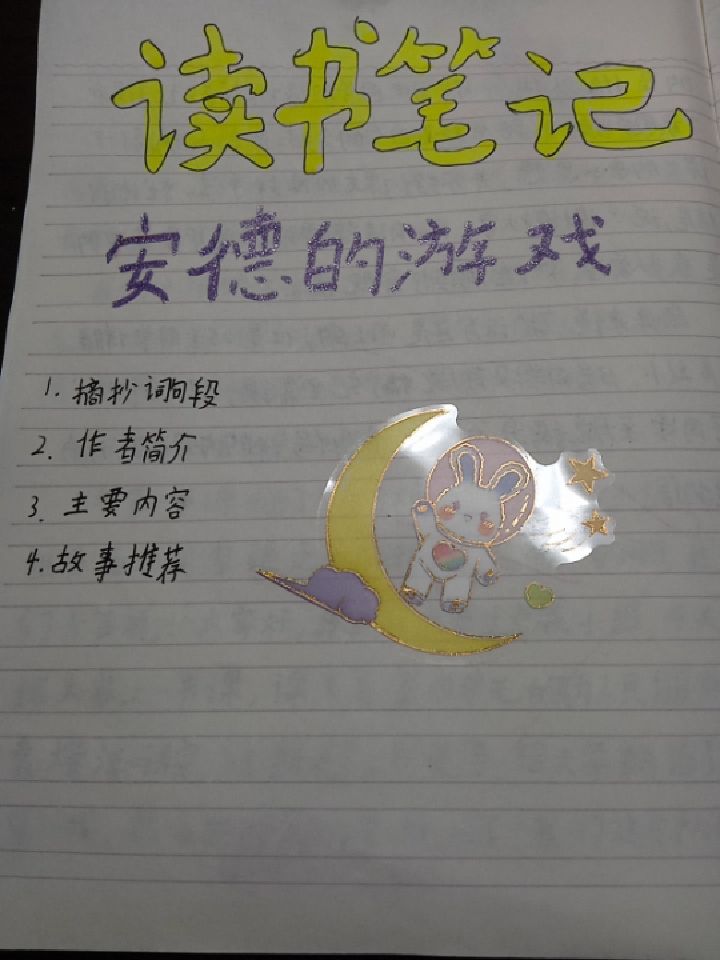 读书笔记
安德的游戏
1. 摘抄词句段
2. 作者简介
3. 主要内容
4. 故事推荐